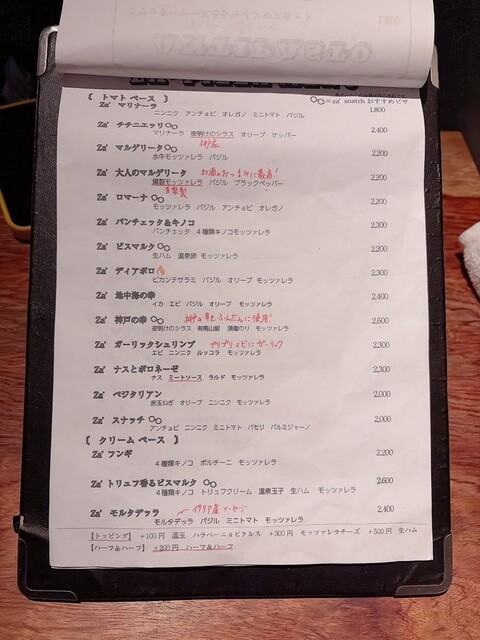 【 トマト ベース 】
○○=za' snatch おすすめピザ
Za' マリナーラ 1,800
ニンニク アンチョビ オレガノ ミニトマト バジル
Za' チチニエッリ○○ 2,400
マリナーラ 夜明けのシラス オリーブ ケッパー
神戸産
Za' マルゲリータ○○ 2,200
水牛モッツァレラ バジル
Za' 大人のマルゲリータ お酒のおつまみに最高! 2,200
燻製モッツァレラ バジル ブラックペッパー
自家製
Za' ロマーナ ○○ 2,200
モッツァレラ バジル アンチョビ オレガノ
Za' パンチェッタ&キノコ 2,300
パンチェッタ 4種類キノコモッツァレラ
Za' ビスマルク ○○ 2,200
生ハム 温泉卵 モッツァレラ
Za' ディアボロ 2,300
ピカンテサラミ バジル オリーブ モッツァレラ
Za' 地中海の幸 2,400
イカ エビ バジル オリーブ モッツァレラ
Za' 神戸の幸 ○○ 神戸の食ふんだんに使用! 2,600
夜明けのシラス 有馬山椒 須磨のり モッツァレラ
Za' ガーリックシュリンプ プリプリエビにガーリック 2,300
エビ ニンニク ルッコラ モッツァレラ
Za' ナスとボロネーゼ 2,300
ナス ミートソース ラルド モッツァレラ
Za' ベジタリアン 2,000
赤玉ねぎ オリーブ ニンニク モッツァレラ
Za' スナッチ ○○ 2,000
アンチョビ ニンニク ミニトマト パセリ パルミジャーノ
【 クリーム ベース 】
Za' フンギ 2,200
4種類キノコ ポルチーニ モッツァレラ
Za' トリュフ香るビスマルク ○○ 2,600
4種類キノコ トリュフクリーム 温泉玉子 生ハム モッツァレラ
Za' モルタデッラ イタリア産ソーセージ 2,400
モルタデッラ バジル ミニトマト モッツァレラ
【トッピング】 +100円 温玉 ハラペーニョピクルス +300円 モッツァレラチーズ +500円 生ハム
【ハーフ&ハーフ】 +200円 ハーフ&ハーフ